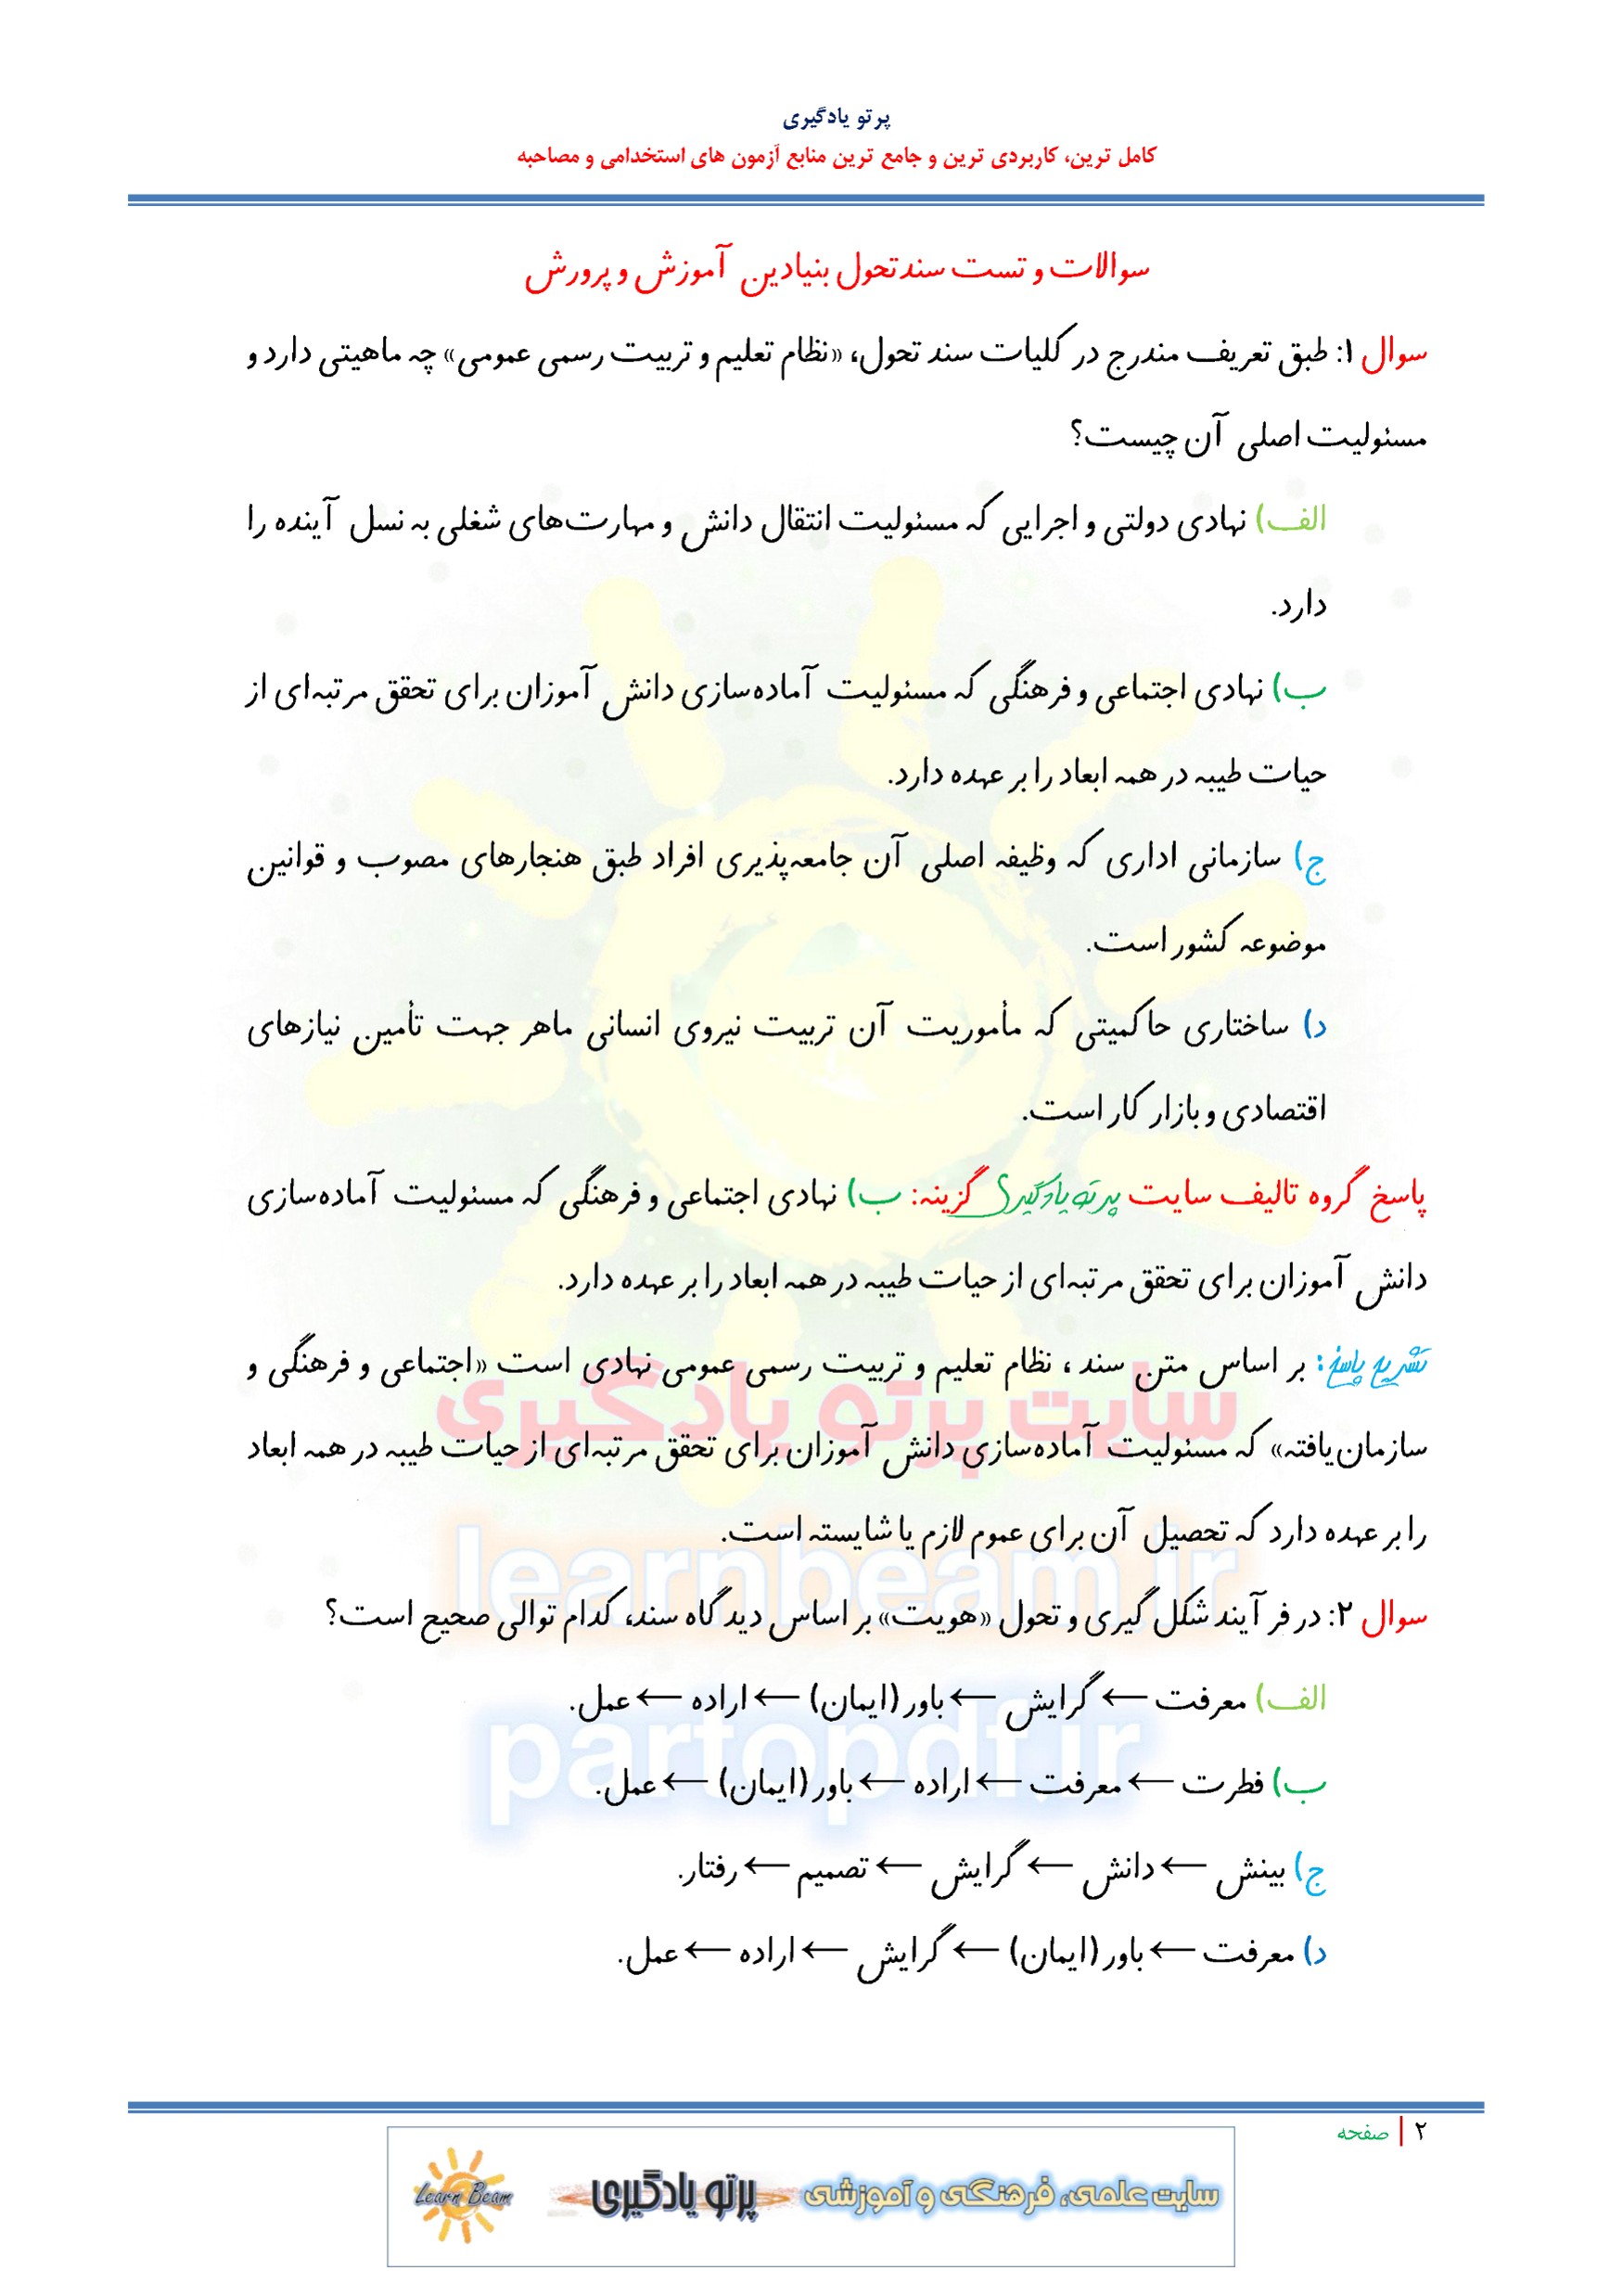 پرتو یادگیری
کامل ترین، کاربردی ترین و جامع ترین منابع آزمون های استخدامی و مصاحبه
سوالات و تست سند تحول بنیادین آموزش و پرورش
سوال ۱: طبق تعریف مندرج در کلیات سند تحول، «نظام تعلیم و تربیت رسمی عمومی» چه ماهیتی دارد و
مسئولیت اصلی آن چیست؟
الف) نهادی دولتی و اجرایی که مسئولیت انتقال دانش و مهارت‌های شغلی به نسل آینده را
دارد.
ب) نهادی اجتماعی و فرهنگی که مسئولیت آماده‌سازی دانش آموزان برای تحقق مرتبه‌ای از
حیات طیبه در همه ابعاد را بر عهده دارد.
ج) سازمانی اداری که وظیفه اصلی آن جامعه‌پذیری افراد طبق هنجارهای مصوب و قوانین
موضوعه کشور است.
د) ساختاری حاکمیتی که مأموریت آن تربیت نیروی انسانی ماهر جهت تأمین نیازهای
اقتصادی و بازار کار است.
پاسخ گروه تالیف سایت پرتو یادگیری گزینه: ب) نهادی اجتماعی و فرهنگی که مسئولیت آماده‌سازی
دانش آموزان برای تحقق مرتبه‌ای از حیات طیبه در همه ابعاد را بر عهده دارد.
تشریح پاسخ: بر اساس متن سند، نظام تعلیم و تربیت رسمی عمومی نهادی است «اجتماعی و فرهنگی و
سازمان‌یافته» که مسئولیت آماده‌سازی دانش آموزان برای تحقق مرتبه‌ای از حیات طیبه در همه ابعاد
را بر عهده دارد که تحصیل آن برای عموم لازم یا شایسته است.
سایت پرتو یادگیری
learnbeam.ir
سوال ۲: در فرآیند شکل گیری و تحول «هویت» بر اساس دیدگاه سند، کدام توالی صحیح است؟
الف) معرفت ← گرایش ← باور (ایمان) ← اراده ← عمل.
partopdf.ir
ب) فطرت ← معرفت ← اراده ← باور (ایمان) ← عمل.
ج) بینش ← دانش ← گرایش ← تصمیم ← رفتار.
د) معرفت ← باور (ایمان) ← گرایش ← اراده ← عمل.
۲ | صفحه
سایت علمی، فرهنگی و آموزشی پرتو یادگیری Learn Beam